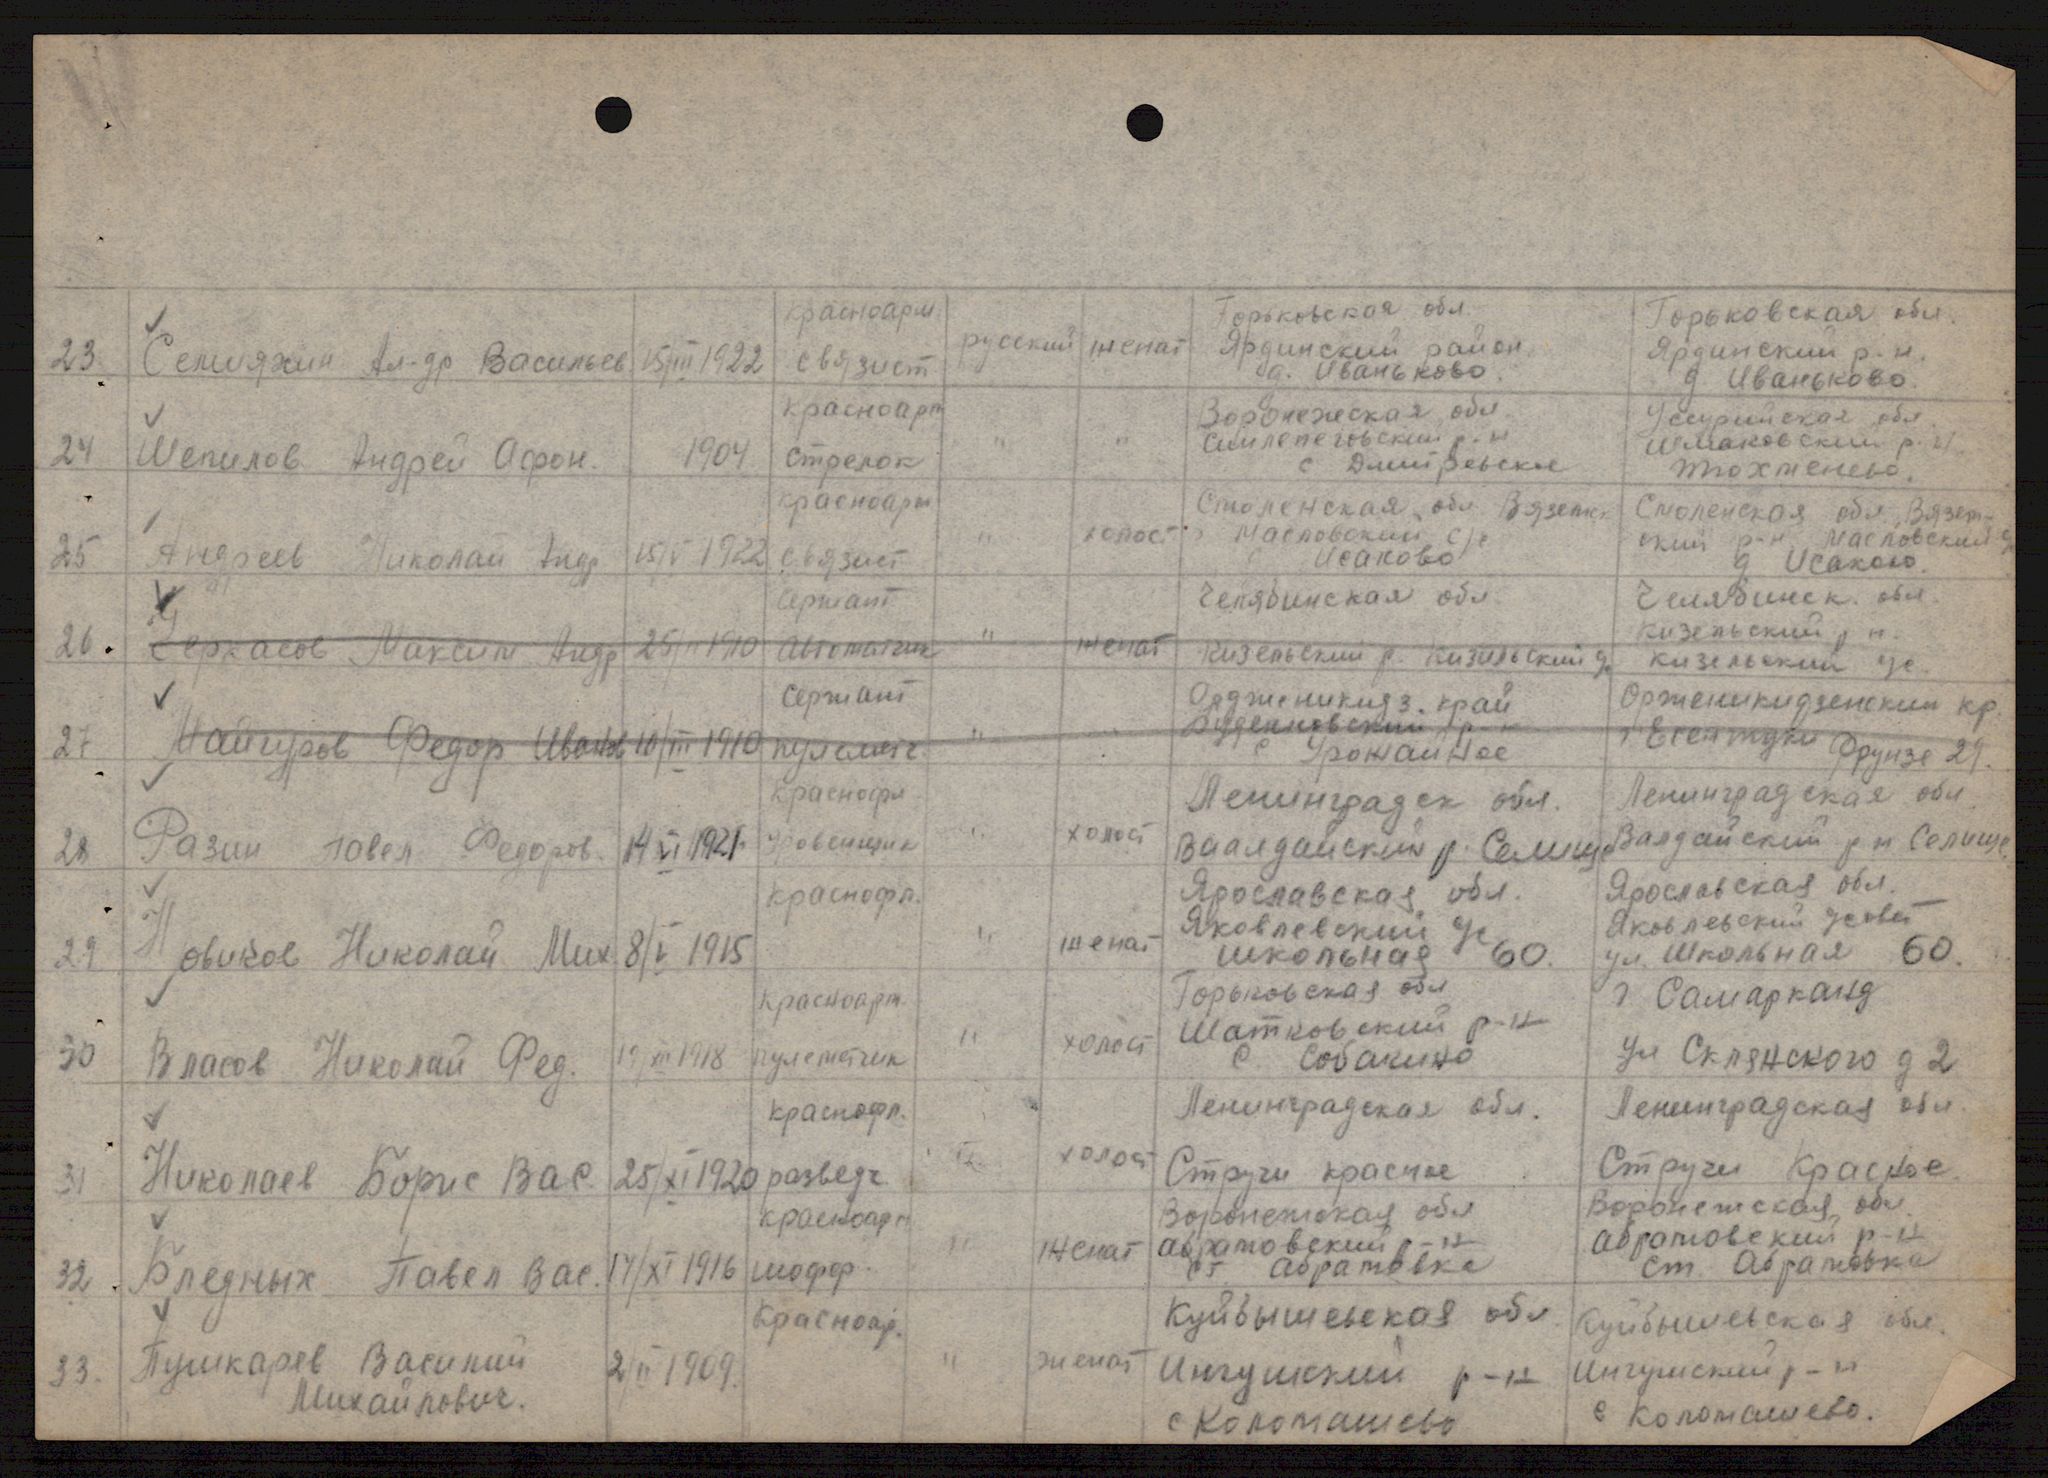 23. Семияхин Ал-др Васильев 15/III 1922 красноарм. связист русский женат Горьковская обл. Ярдинский район д. Иваньково. Горьковская обл. Ярдинский р-н. д Иваньково.
24 Шепилов Андрей Афон. 1904 красноарм стрелок " " Воронежская обл. р-н с Дмитревское Уссурийская обл. Шмаковский р-н
25 Андреев Николай Андр 15/V 1922 красноарм связист " холост Смоленская обл Вяземск Масловский с/с Исаково Смоленская обл. Вязем-ский р-н Масловский д Исаково.
26. Черкасов Максим Андр 25/II 1910 сержант автоматчик " женат Челябинская обл. Кизельский р. Кизильский Челябинск. обл. Кизельский р н. Кизельский
27 Майгуров Федор Иванов 10/III 1910 сержант пулеметч. " " Орджоникидз. край Буденновский р-н с Урожайное Орженикидзенский кр. г Есентуки Фрунзе 29.
28 Разин Павел Федоров. 14 VI 1921 краснофл " холост Ленинградск обл. Ваалдайский р. Селище Ленинградская обл Валдайский р н Селище.
29 Новиков Николай Мих 8/V 1915 краснофл. " женат Ярославская обл. Яковлевский с школьная 60. Ярославская обл. Яковлевский ул. Школьная 60.
30 Власов Николай Фед. 19/XII 1918 красноарм. пулеметчик " холост Горьковская обл Шатковский р-н с. Собакино г Самарканд ул Склянского д 2
31 Николаев Борис Вас. 25/XI 1920 краснофл. разведч. " холост Ленинградская обл. Стручи красное Ленинградская обл Стручи Красное
32. Бледных Павел Вас. 17/XI 1916 красноарм шофер. " женат Воронежская обл абрамовский р-н ст. абрамовка Воронежская обл. абрамовский р-н ст. Абрамовка
33. Пушкарев Василий Михайлович. 2/II 1909. красноар. " женат Куйбышевская обл. Ингушский р-н с Коломашево Куйбышевская обл. Ингушский р-н с Коломашево.